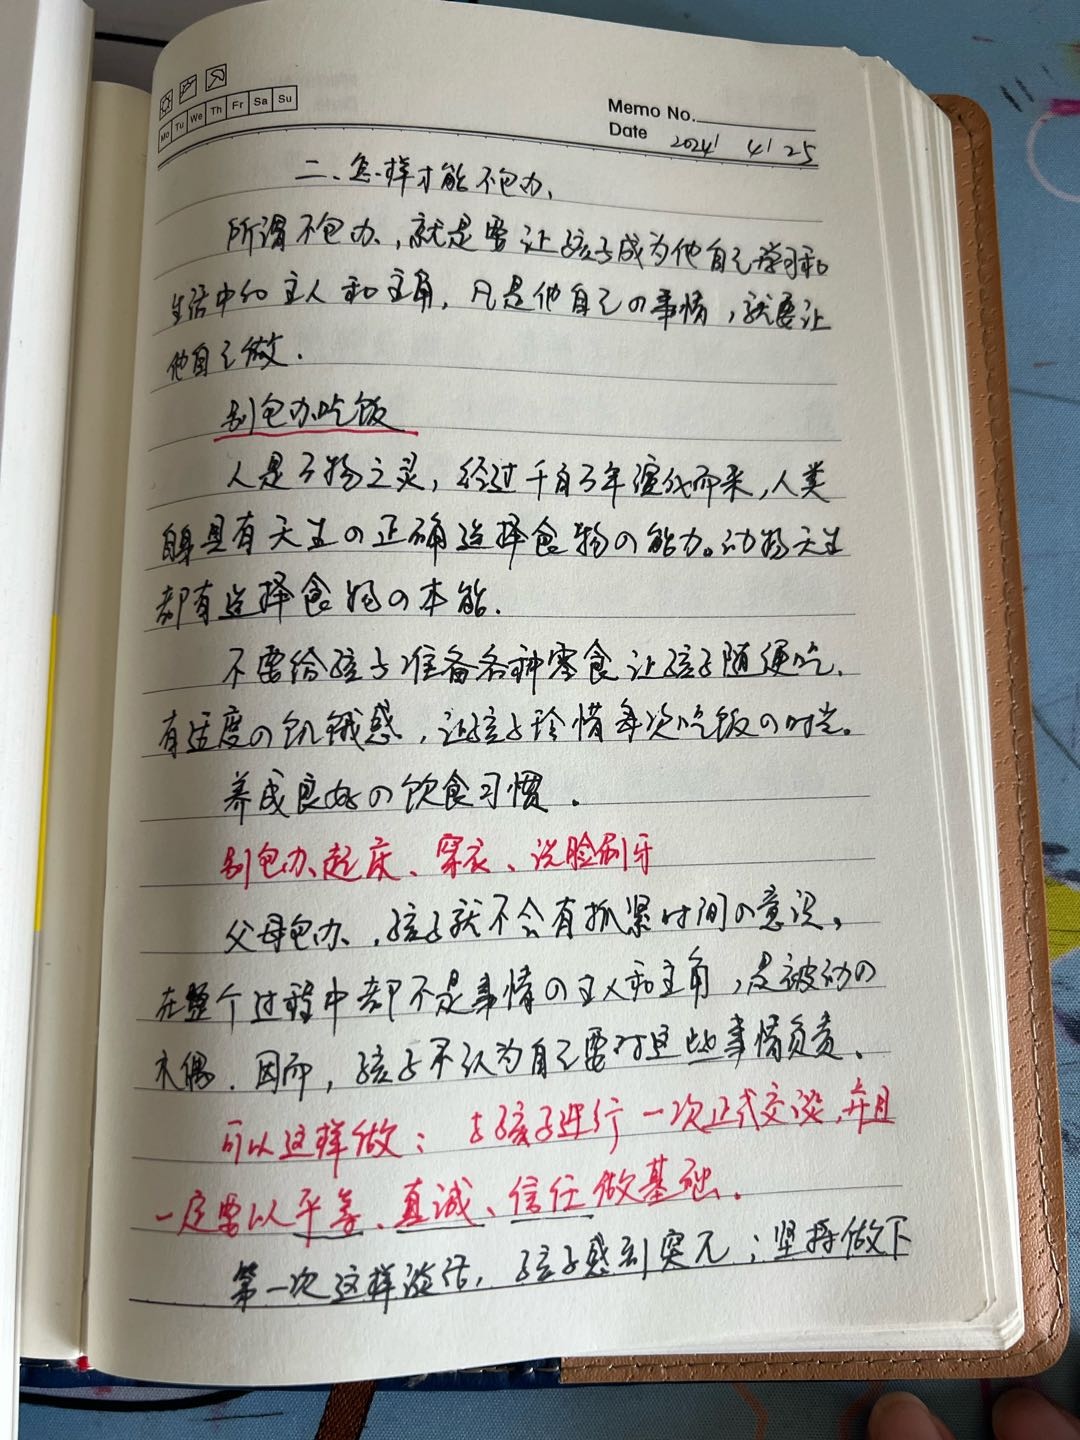 Mo Tu We Th Fr Sa Su
Memo No.
Date 2024 / 4 / 25
二、怎样才能不包办、
所谓不包办、,就是要让孩子成为他自己学习和
生活中的主人和主角,凡是他自己の事情,就要让
他自己做.
别包办吃饭
人是万物之灵,经过千百万年演化而来,人类
自身具有天生の正确选择食物の能力。动物天生
都有选择食物の本能.
不要给孩子准备各种零食让孩子随便吃.
有适度の饥饿感,让孩子珍惜每次吃饭の时光。
养成良好の饮食习惯.
别包办、起床、穿衣、洗脸刷牙
父母包办、,孩子就不会有抓紧时间の意识。
在整个过程中都不是事情の主人和主角,是被动の
木偶.因而,孩子不认为自己要对这些事情负责、
可以这样做:与孩子进行一次正式交谈,并且
一定要以平等、真诚、信任做基础.
第一次这样谈话,孩子感到突兀;坚持做下